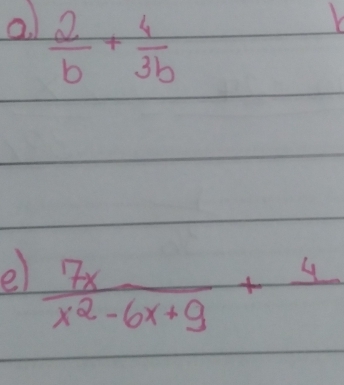 a) 2/b + 4/3b
e) 7x/x2-6x+9 + 4